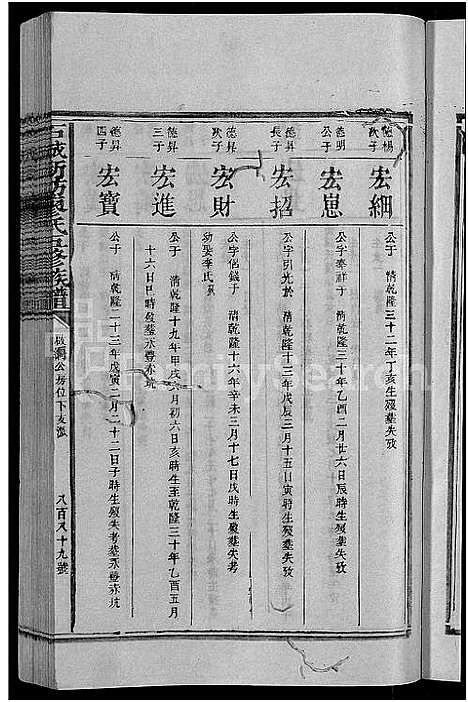 德楊次子
宏綱
公于 清乾隆三十二年丁亥生殁墓失攷
德明公子
宏崽
公字奉祥于 清乾隆三十年乙酉二月廿六日辰時生殁墓失攷
德昇長子
宏招
公字引光於 清乾隆十三年戊辰三月十五日寅時生殁墓失攷
德昇次子
宏財
公字 錢于 清乾隆十六年辛未三月十七日戌時生殁墓失考
幼娶李氏
德昇三子
宏進
公于 清乾隆十九年甲戌六月初六日亥時生至乾隆三十年乙酉五月
十六日巳時殁墓永豐赤坑
德昇四子
宏寶
公于 清乾隆二十三年戊寅二月二十二日子時生殁失考墓永豐赤坑
石城 坊廖氏 修族譜
公房位下支派
八百八十九號
FamilySearch